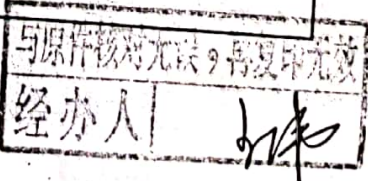 与原件核对无误,再复印无效
经办人